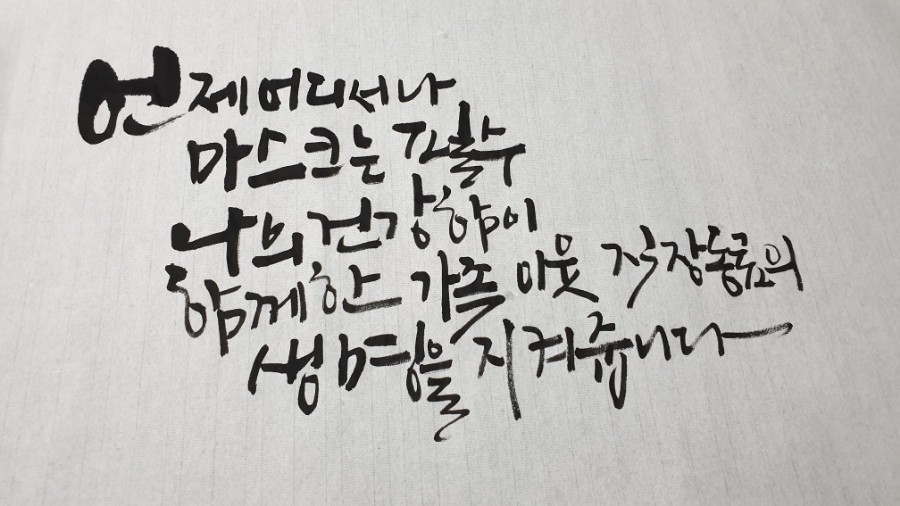 언제 어디서나
마스크는
나의 건강함이
함께한 가족 이웃 직장동료의
생명을 지켜줍니다